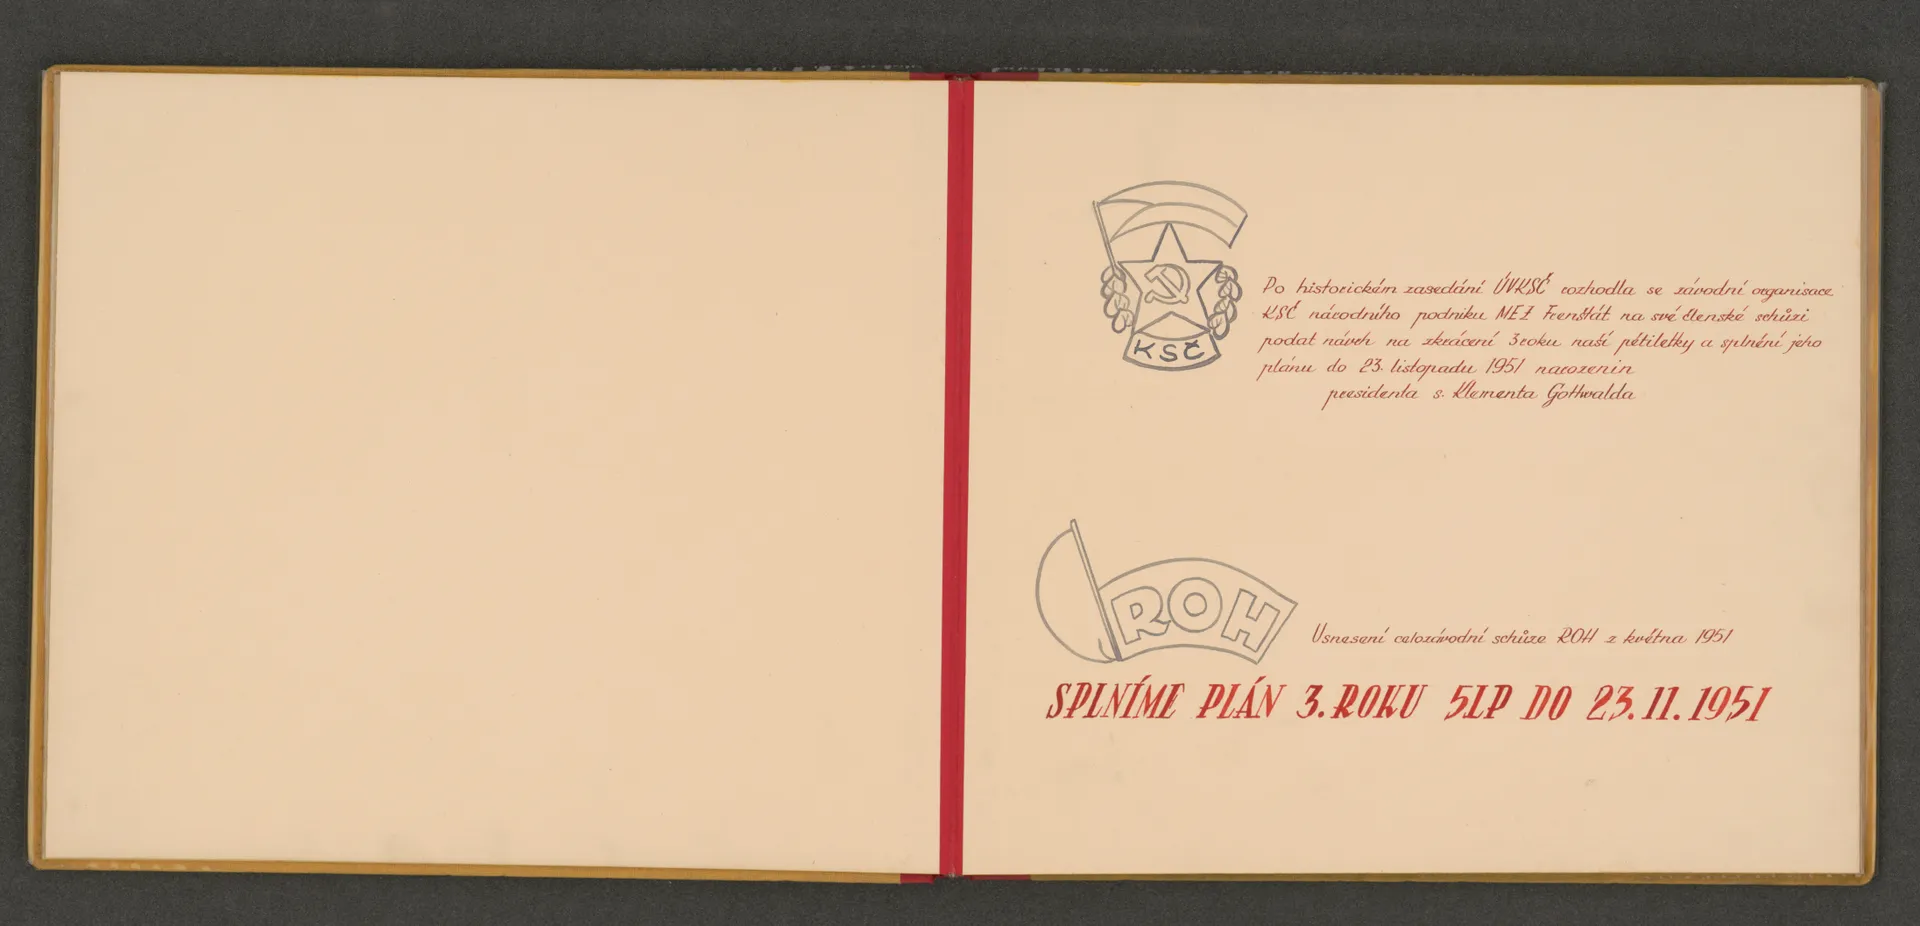 KSČ
Po historickém zasedání ÚVKSČ rozhodla se závodní organisace
KSČ národního podniku MEZ Frenštát na své členské schůzi
podat návrh na zkrácení 3 roku naší pětiletky a splnění jeho
plánu do 23. listopadu 1951 narozenin
presidenta s. Klementa Gottwalda
ROH
Usnesení celozávodní schůze ROH z května 1951
SPLNÍME PLÁN 3. ROKU 5LP DO 23.11.1951